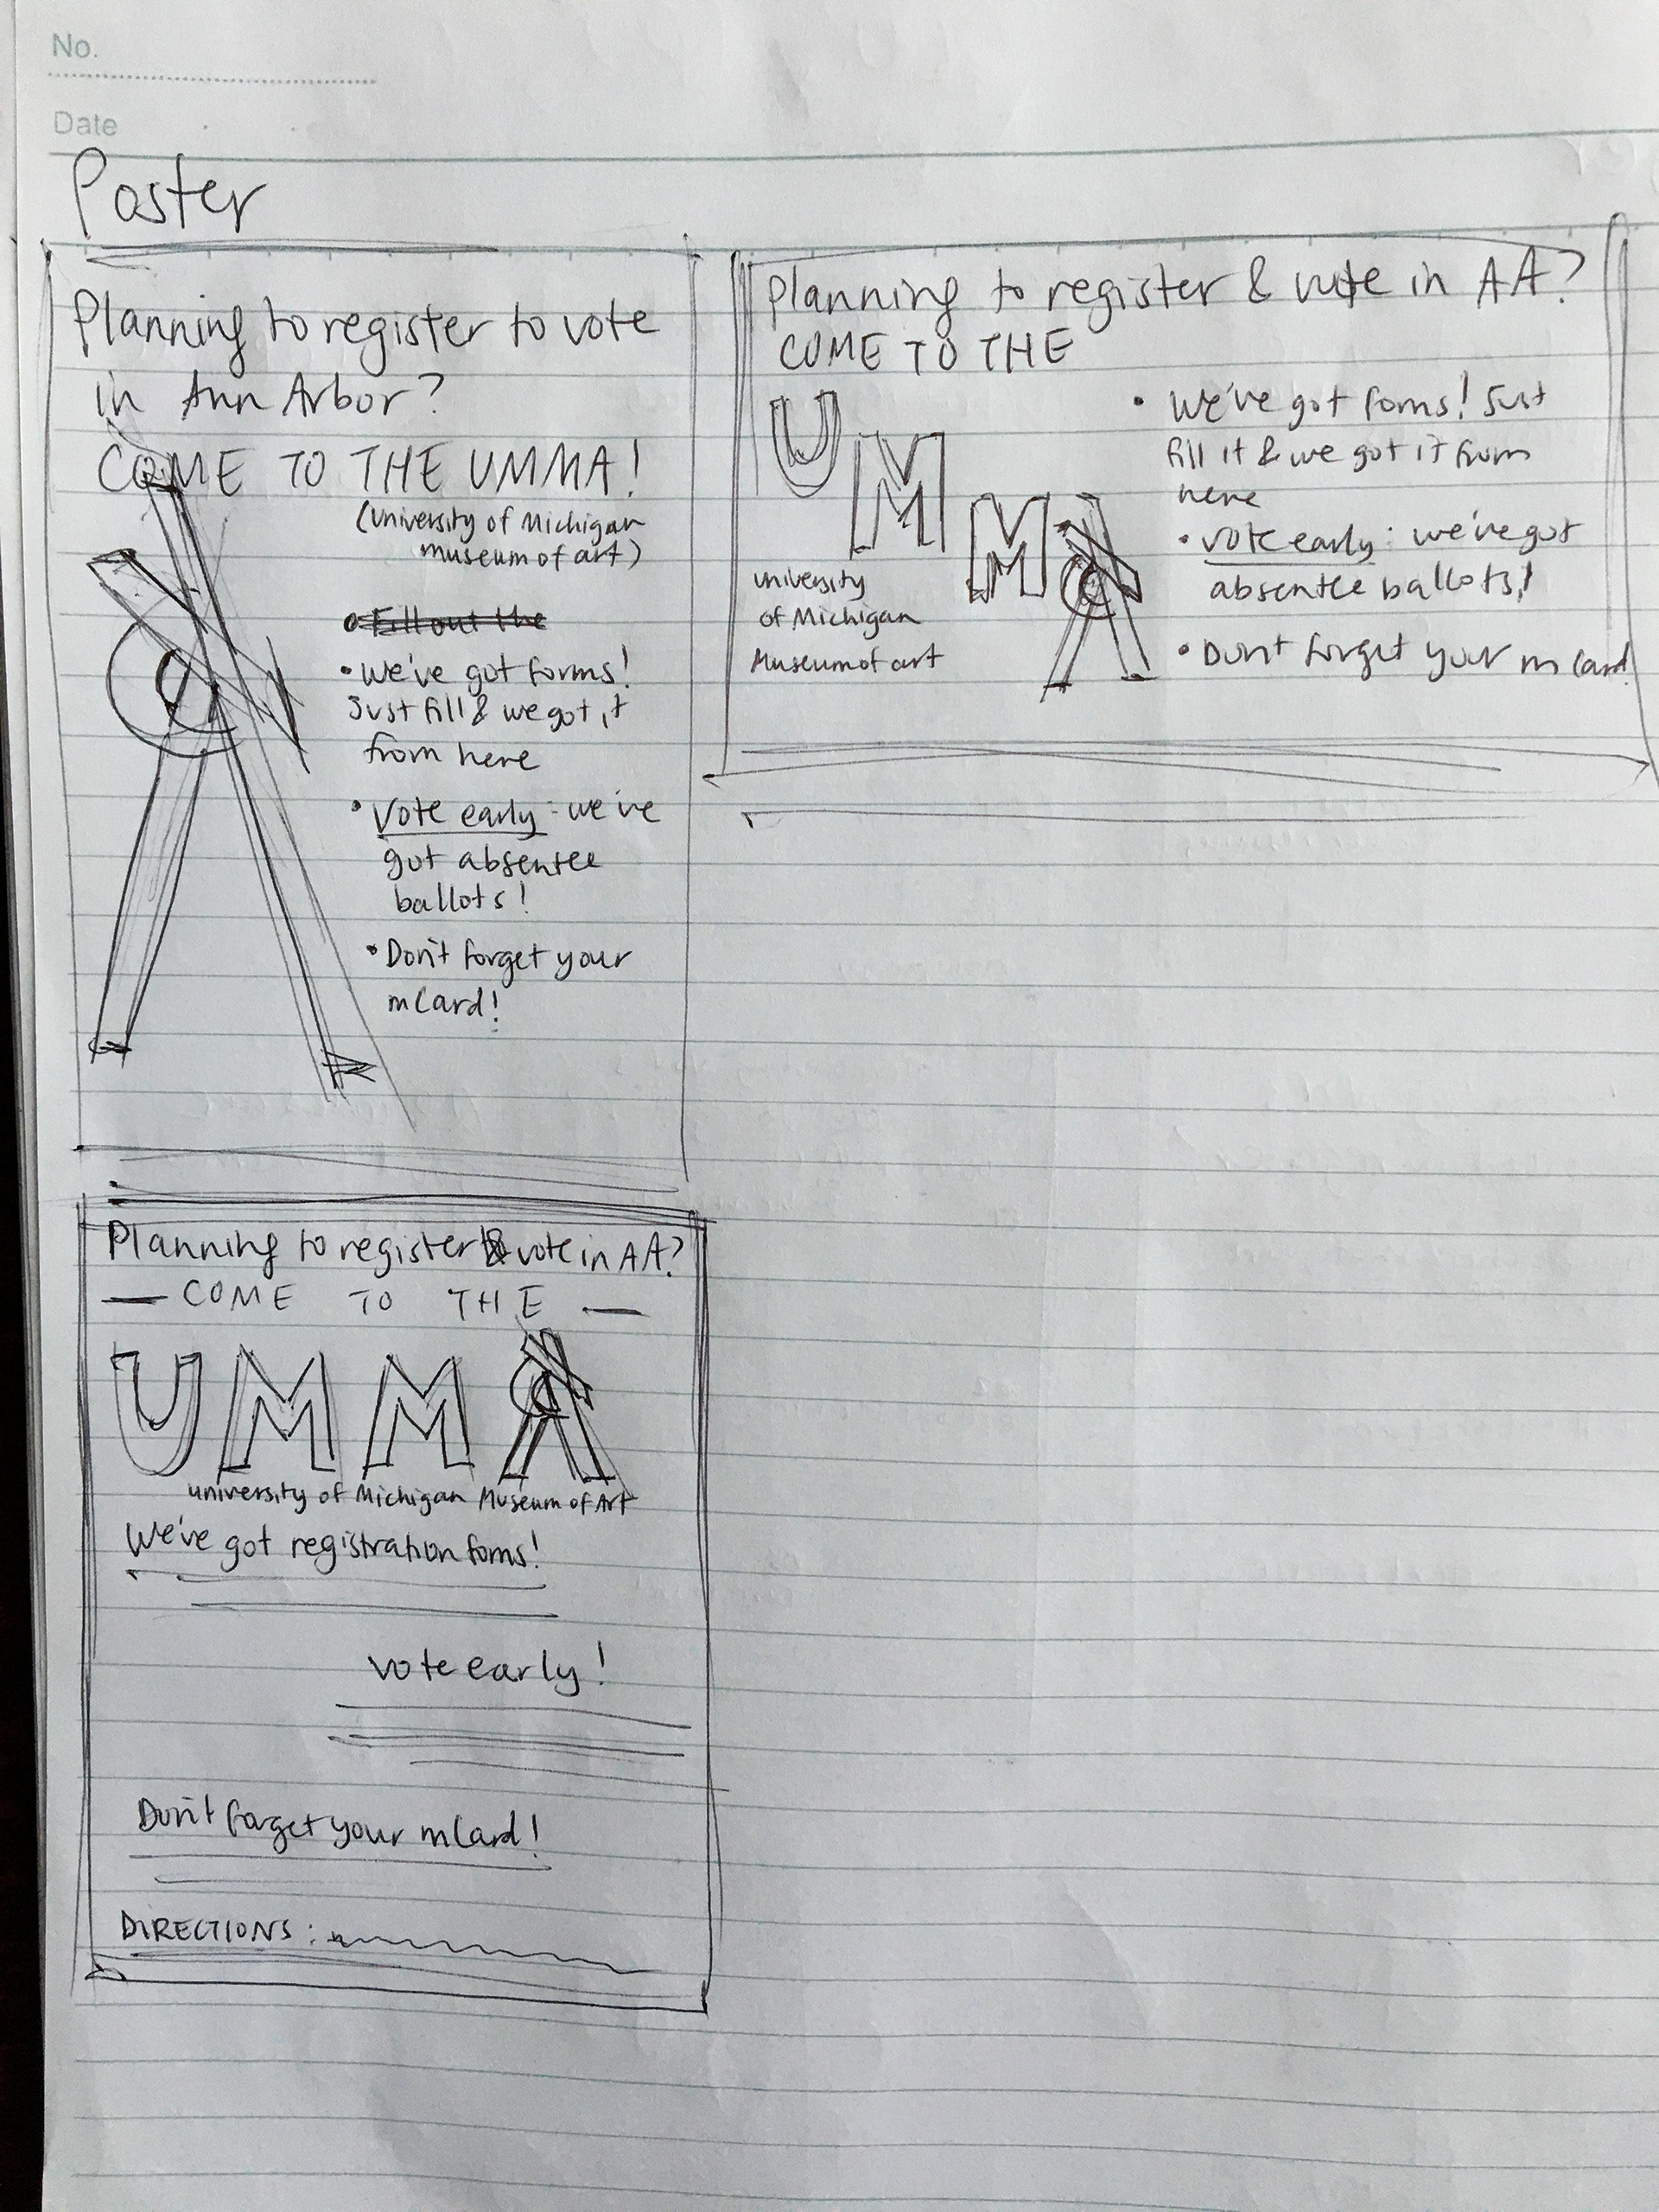 No.
Date
Poster
Planning to register to vote
in Ann Arbor?
COME TO THE UMMA!
(University of Michigan
museum of art)
• Fill out the
• We've got forms!
Just fill & we got it
from here
• Vote early: we've
got absentee
ballots!
• Don't forget your
mCard!
Planning to register & vote in AA?
COME TO THE
UMMA
university
of Michigan
Museum of art
• We've got forms! Just
fill it & we got it from
here
• Vote early: we've got
absentee ballots!
• Don't forget your mCard!
Planning to register & vote in AA?
— COME TO THE —
UMMA
university of Michigan Museum of Art
We've got registration forms!
vote early!
Don't forget your mCard!
DIRECTIONS: